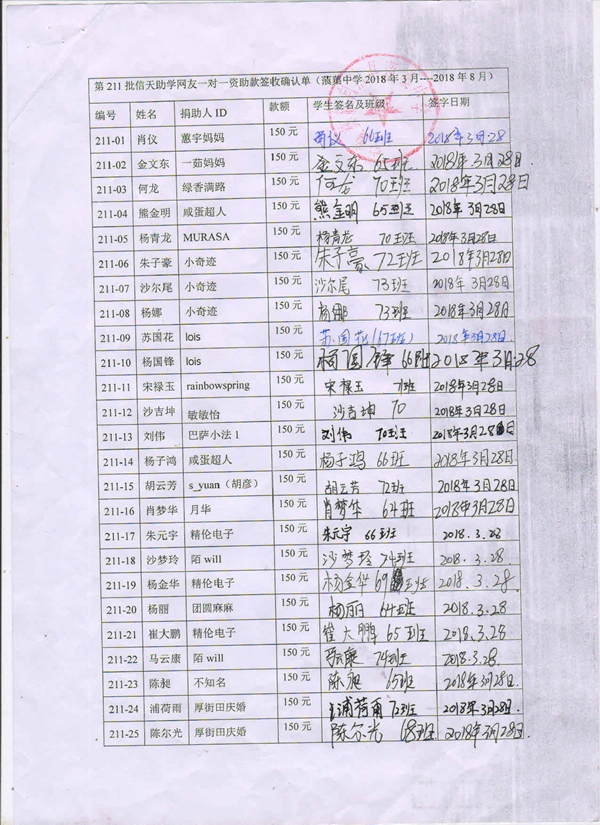 第 211 批信天助学网友一对一资助款签收确认单（蒗蕖中学 2018 年 3 月----2018 年 8 月）
编号 姓名 捐助人 ID 款额 学生签名及班级 签字日期
211-01 肖仪 蕙宇妈妈 150 元 肖仪 66班 2018年3月28
211-02 金文东 一茹妈妈 150 元 金文东 65班 2018年3月28日
211-03 何龙 绿香满路 150 元 何龙 70班 2018年3月28日
211-04 熊金明 咸蛋超人 150 元 熊金明 65班 2018年3月28日
211-05 杨青龙 MURASA 150 元 杨青龙 70班 2018年3月28日
211-06 朱子豪 小奇迹 150 元 朱子豪 72班 2018年3月28日
211-07 沙尔尾 小奇迹 150 元 沙尔尾 73班 2018年3月28日
211-08 杨娜 小奇迹 150 元 杨娜 73班 2018年3月28日
211-09 苏国花 lois 150 元 苏国花(67班) 2018年3月28日
211-10 杨国锋 lois 150 元 杨国锋 66班 2018年3月28
211-11 宋禄玉 rainbowspring 150 元 宋禄玉 71班 2018年3月28日
211-12 沙吉坤 敏敏怡 150 元 沙吉坤 70 2018年3月28日
211-13 刘伟 巴萨小法 1 150 元 刘伟 70班 2018年3月28日
211-14 杨子鸿 咸蛋超人 150 元 杨子鸿 66班 2018年3月28日
211-15 胡云芳 s_yuan（胡彦） 150 元 胡云芳 72班 2018年3月28日
211-16 肖梦华 月华 150 元 肖梦华 64班 2018年3月28日
211-17 朱元宇 精伦电子 150 元 朱元宇 66班 2018.3.28
211-18 沙梦玲 陌 will 150 元 沙梦玲 74班 2018.3.28
211-19 杨金华 精伦电子 150 元 杨金华 69班 2018.3.28
211-20 杨丽 团圆麻麻 150 元 杨丽 64班 2018.3.28
211-21 崔大鹏 精伦电子 150 元 崔大鹏 65班 2018.3.28
211-22 马云康 陌 will 150 元 74班 2018.3.28
211-23 陈昶 不知名 150 元 陈昶 65班 2018年3月28日
211-24 浦荷雨 厚街田庆婚 150 元 浦荷雨 72班 2018年3月28日
211-25 陈尔光 厚街田庆婚 150 元 陈尔光 68班 2018年3月28日